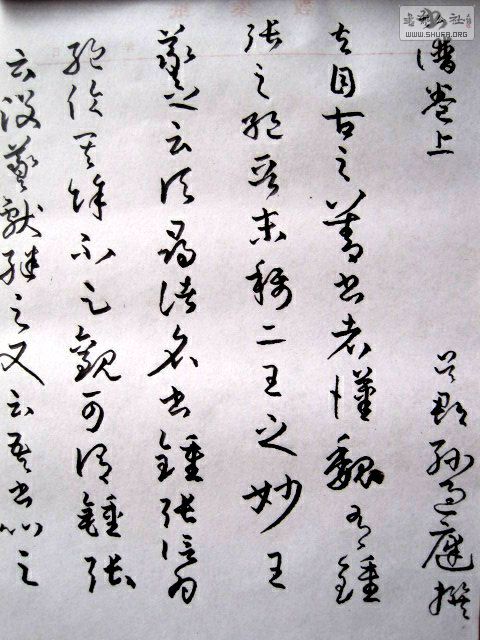 譜卷上 吳郡孫過庭撰
夫自古之善書者漢魏有鍾
張之絕晉末稱二王之妙王
羲之云頃尋諸名書鍾張信為
絕倫其餘不足觀可謂鍾張
云沒羲獻繼之又云吾書比之
WWW.SHUFA.ORG